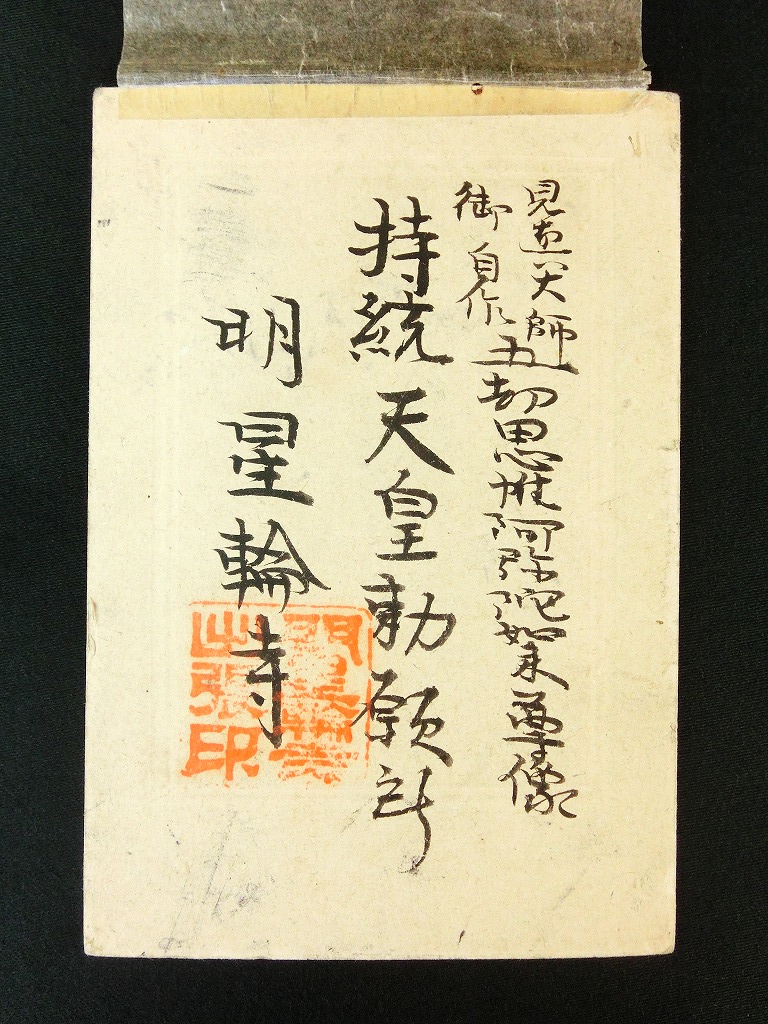 見真大師
御自作五劫思惟阿弥陀如来尊像
持統天皇勅願所
明星輪寺
出張印